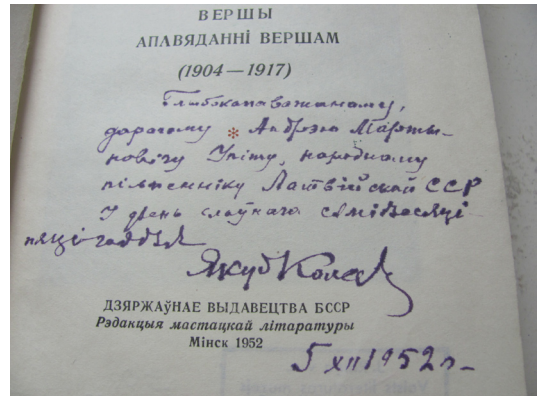 ВЕРШЫ
АПАВЯДАННІ ВЕРШАМ
(1904—1917)
Глыбокапаважаному,
дарагому * Андрэю Марты-
новічу Упіту, народнаму
пісьменніку Латвійскай ССР
У дзень слаўнага сямідзесяці
пяцігоддзя
Якуб Колас
ДЗЯРЖАЎНАЕ ВЫДАВЕЦТВА БССР
Рэдакцыя мастацкай літаратуры
Мінск 1952
5 XII 1952 г.